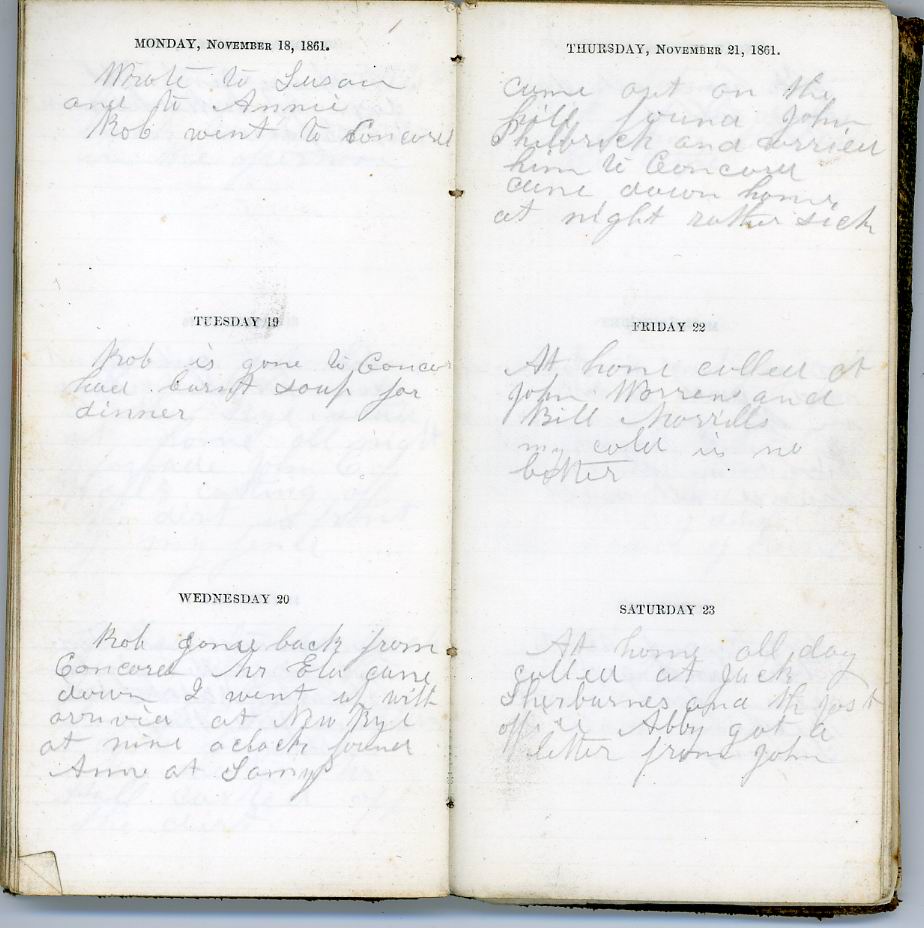 MONDAY, NOVEMBER 18, 1861.
Wrote to Susan
and to Annie
Rob went to Concord
TUESDAY 19
Rob is gone to Concor
had burnt soup for
dinner
WEDNESDAY 20
Rob gone back from
Concord Mr Ela came
down I went up with
arrivier at New Rye
at nine oclock found
Ann at Samys
THURSDAY, NOVEMBER 21, 1861.
came out on the
hill found John
Philbrick and carried
him to Concord
came down home
at night rather sick
FRIDAY 22
At home called at
John Worrens and
Bill Morrills
my cold is no
better
SATURDAY 23
At home all day
called at Jack
Sherburnes and the post
office Abby got a
letter from John